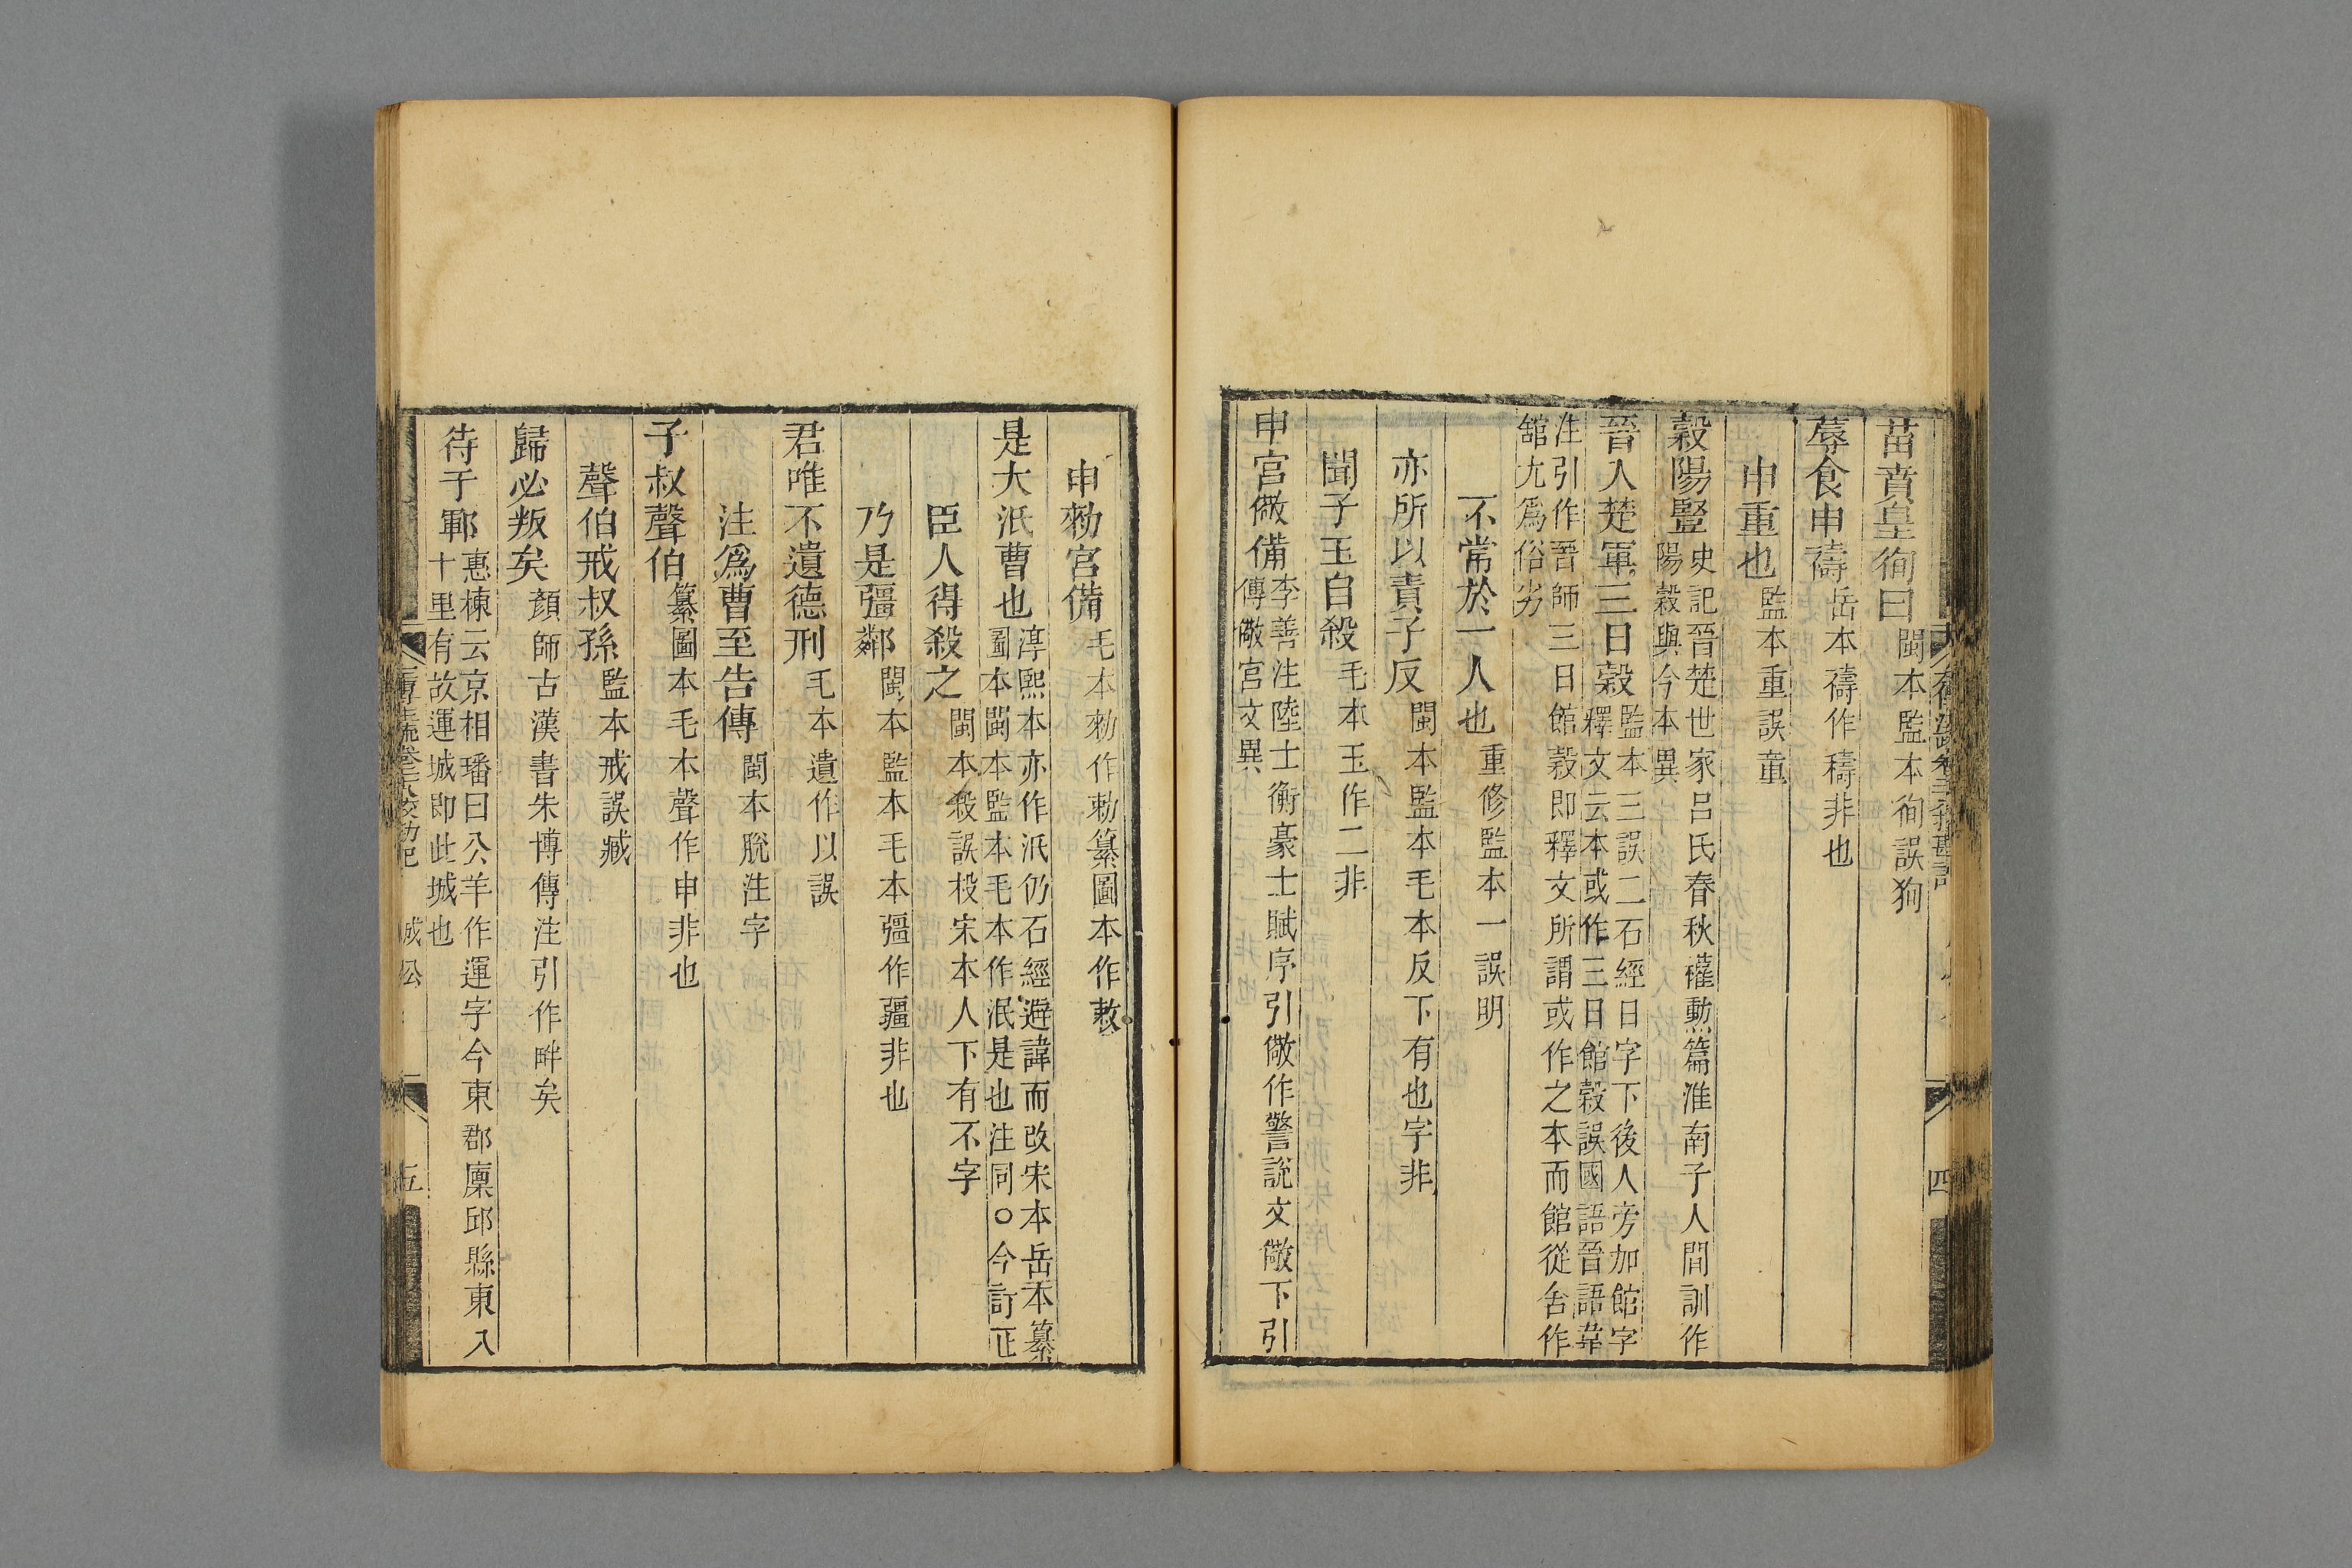 苗賁皇徇曰閩本監本徇誤狥
蓐食申禱岳本禱作𥛅非也
申重也監本重誤童
穀陽豎史記晉楚世家呂氏春秋權勳篇淮南子人間訓作
陽穀與今本異
晉入楚軍三日穀監本三誤二石經日字下後人旁加館字
釋文云本或作三日館穀誤國語晉語韋
注引作晉師三日館穀即釋文所謂或作之本而館從舍作
舘尢爲俗劣
不常於一人也重修監本一誤明
亦所以責子反閩本監本毛本反下有也字非
聞子玉自殺毛本玉作二非
申宮儆備李善注陸士衡豪士賦序引儆作警說文儆下引
傳儆宮文異
四
申勑宮備毛本勑作勅纂圖本作敕
是大泯曹也淳熙本亦作泯仍石經避諱而改宋本岳本纂
圖本閩本監本毛本作泯是也注同○今訂正
臣人得殺之閩本殺誤杸宋本人下有不字
乃是彊鄰閩本監本毛本彊作疆非也
君唯不遺德刑毛本遺作以誤
注爲曹至告傳閩本脫注字
子叔聲伯纂圖本毛本聲作申非也
聲伯戒叔孫監本戒誤臧
歸必叛矣顏師古漢書朱博傳注引作畔矣
待于鄆惠棟云京相璠曰公羊作運字今東郡廩邱縣東八
十里有故運城即此城也
成公
五